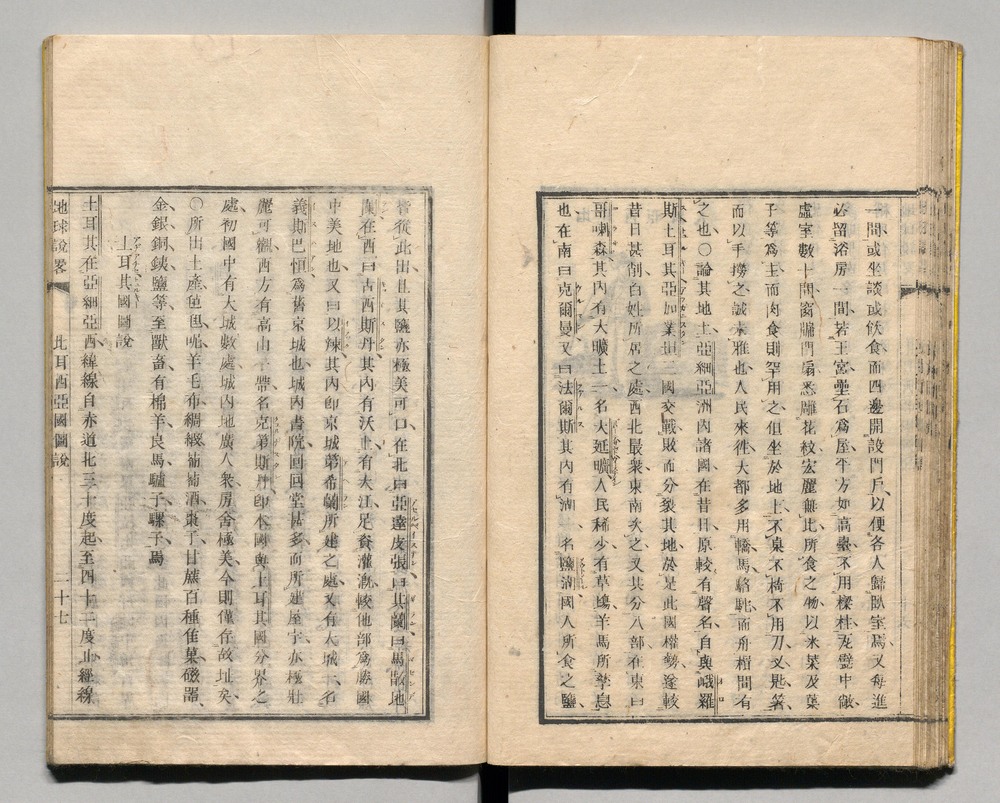 一間或坐談或飲食而四邊開設門戶以便各人歸臥室焉又每進
必留浴房一間若王宮壘石為屋牛方如高臺不用樑柱瓦甓中敞
虛室數十間窗牖門扇悉雕花紋宏麗無比所食之物以米菜及葉
子等為主而肉食則罕用之但坐於地上不桌不椅不用刀叉匙箸
而以手撈之誠素雅也人民來往大都多用轎馬駱駝而舟楫間有
之也〇論其地土亞細亞洲內諸國在昔日原較有聲名自與峨羅
斯土耳其亞加業坦二國交戰敗而分裂其地於是此國權勢遂較
昔日甚削百姓所居之處西北最衆東南次之又其分八部在東曰
哥喇森其內有大曠土一名大延曠人民稀少有草場羊馬所孳息
也在南曰克爾曼又曰法爾斯其內有湖一名鹽湖國人所食之鹽
皆從此出且其鹽亦極美可口在北曰亞達皮張曰其蘭曰馬散地
蘭在西曰古西斯丹其內有沃土有大江足資灌溉較他部為勝國
中美地也又曰以辣其內卽京城第希蘭所建之處又有大城一名
義斯巴恒為舊京城也城內書院回回堂甚多而所建屋宇亦極壯
麗可觀西方有高山一帶名克第斯丹卽本國與土耳其國分界之
處初國中有大城數處城內地廣人衆房舍極美今則僅存故址矣
〇所出土產值毡呢羊毛布綢緞葡萄酒棗子甘蔗百種佳菓磁器
金銀銅鐵鹽等至獸畜有棉羊良馬驢子騾子焉
土耳其國圖說
土耳其在亞細亞西緯線自赤道北三十度起至四十二度止經線
地球說畧 比耳西亞國圖說 二十七